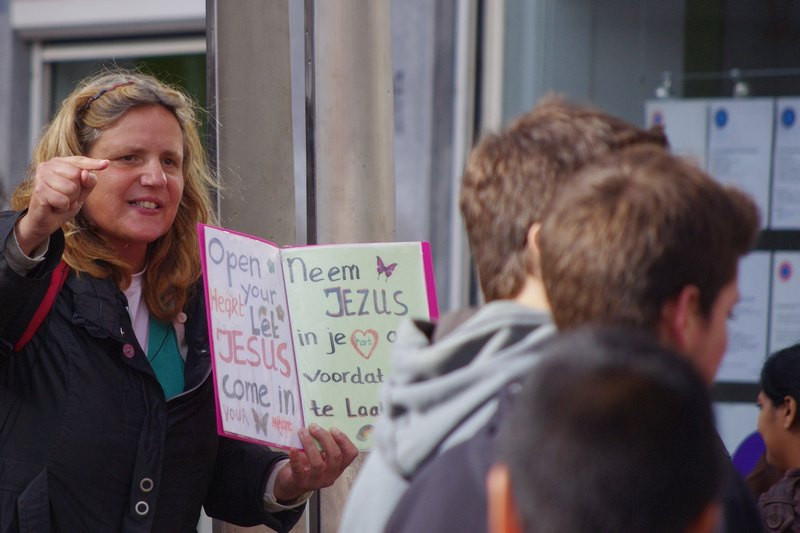 Open
your
Heart
Let
JESUS
come in
YOUR
Neem
JEZUS
in je hart
voordat
te Laa